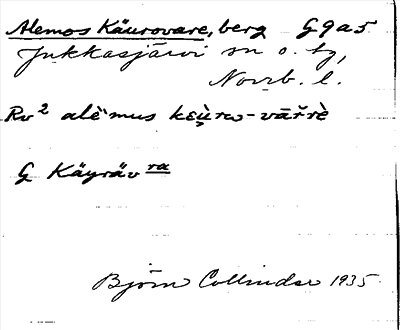 Alemos Käurovare, berg G9a5
Jukkasjärvi sn o. tg,
Norrb. l.
Rv² alèmus kɛu̯rω-vār̆rè
G Käyräv ra
Björn Collinder 1935